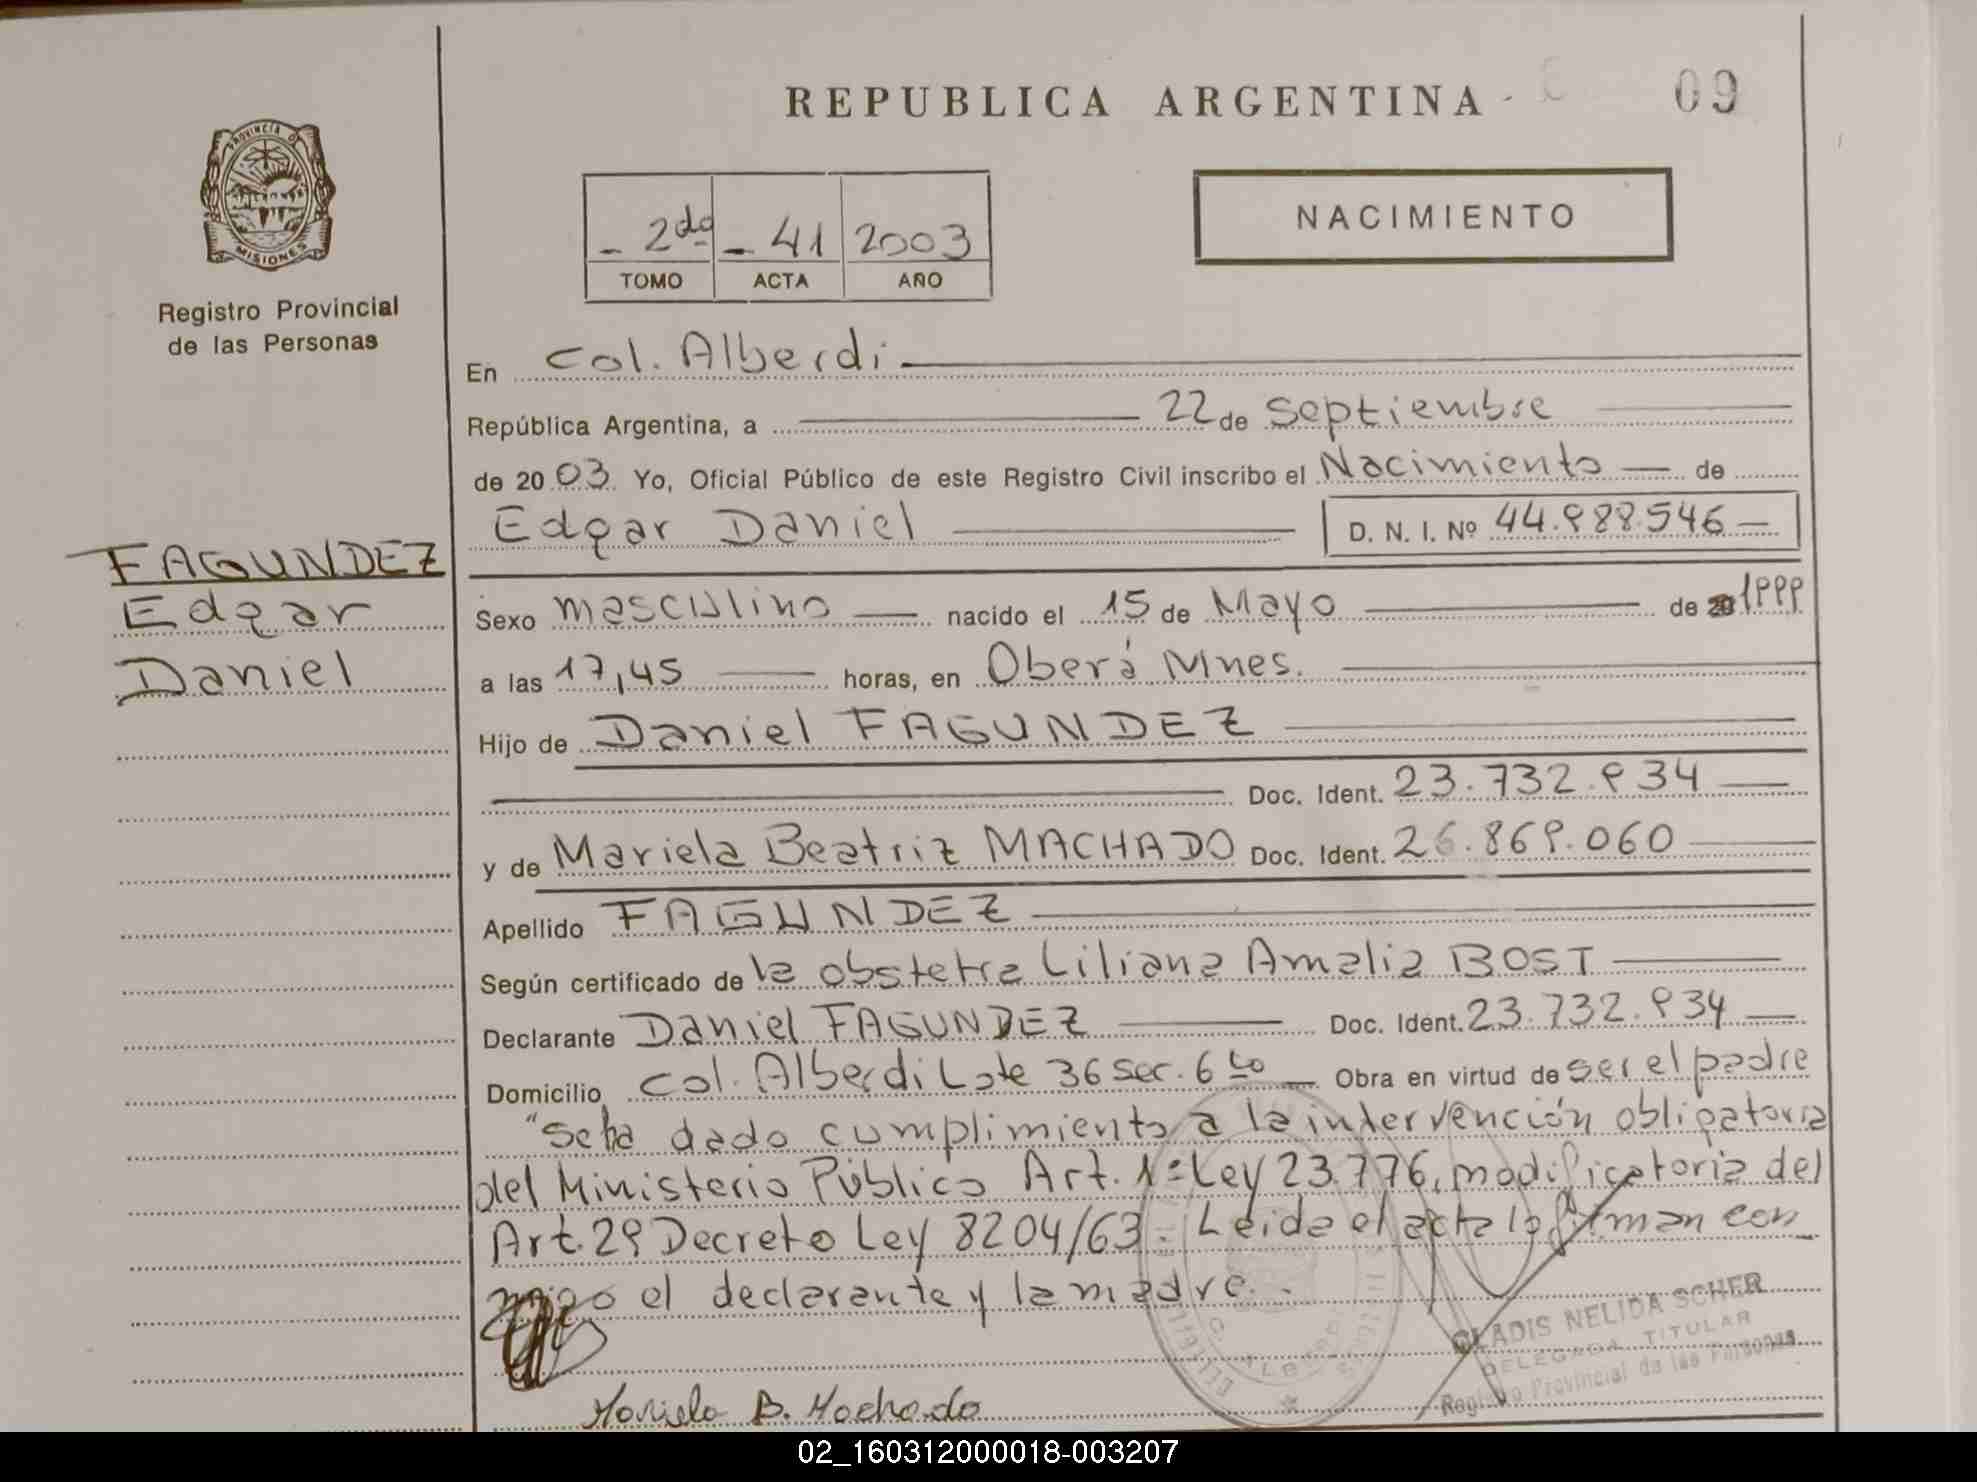 REPUBLICA ARGENTINA
09
PROVINCIA DE
MISIONES
Registro Provincial
de las Personas
2do 41 2003
TOMO ACTA AÑO
NACIMIENTO
En Col. Alberdi
República Argentina, a 22 de Septiembre
de 2003 Yo, Oficial Público de este Registro Civil inscribo el Nacimiento de
Edgar Daniel D. N. I. Nº 44.988.546
FAGUNDEZ
Edgar
Daniel
Sexo masculino nacido el 15 de Mayo de 1999
a las 17,45 horas, en Oberá Mnes.
Hijo de Daniel FAGUNDEZ
Doc. Ident. 23.732.934
y de Mariela Beatriz MACHADO Doc. Ident. 26.869.060
Apellido FAGUNDEZ
Según certificado de la obstetra Liliana Amalia BOST
Declarante Daniel FAGUNDEZ Doc. Ident. 23.732.934
Domicilio Col. Alberdi Lote 36 Sec. 6to Obra en virtud de ser el padre
"Se ha dado cumplimiento a la intervención obligatoria
del Ministerio Público Art. 1º Ley 23.776, modificatoria del
Art. 29 Decreto Ley 8204/63. Leida el acta la firman con
migo el declarante y la madre.
GLADIS NELIDA SCHER
DELEGADA TITULAR
Registro Provincial de las Personas
Mariela B. Machado
02_160312000018-003207